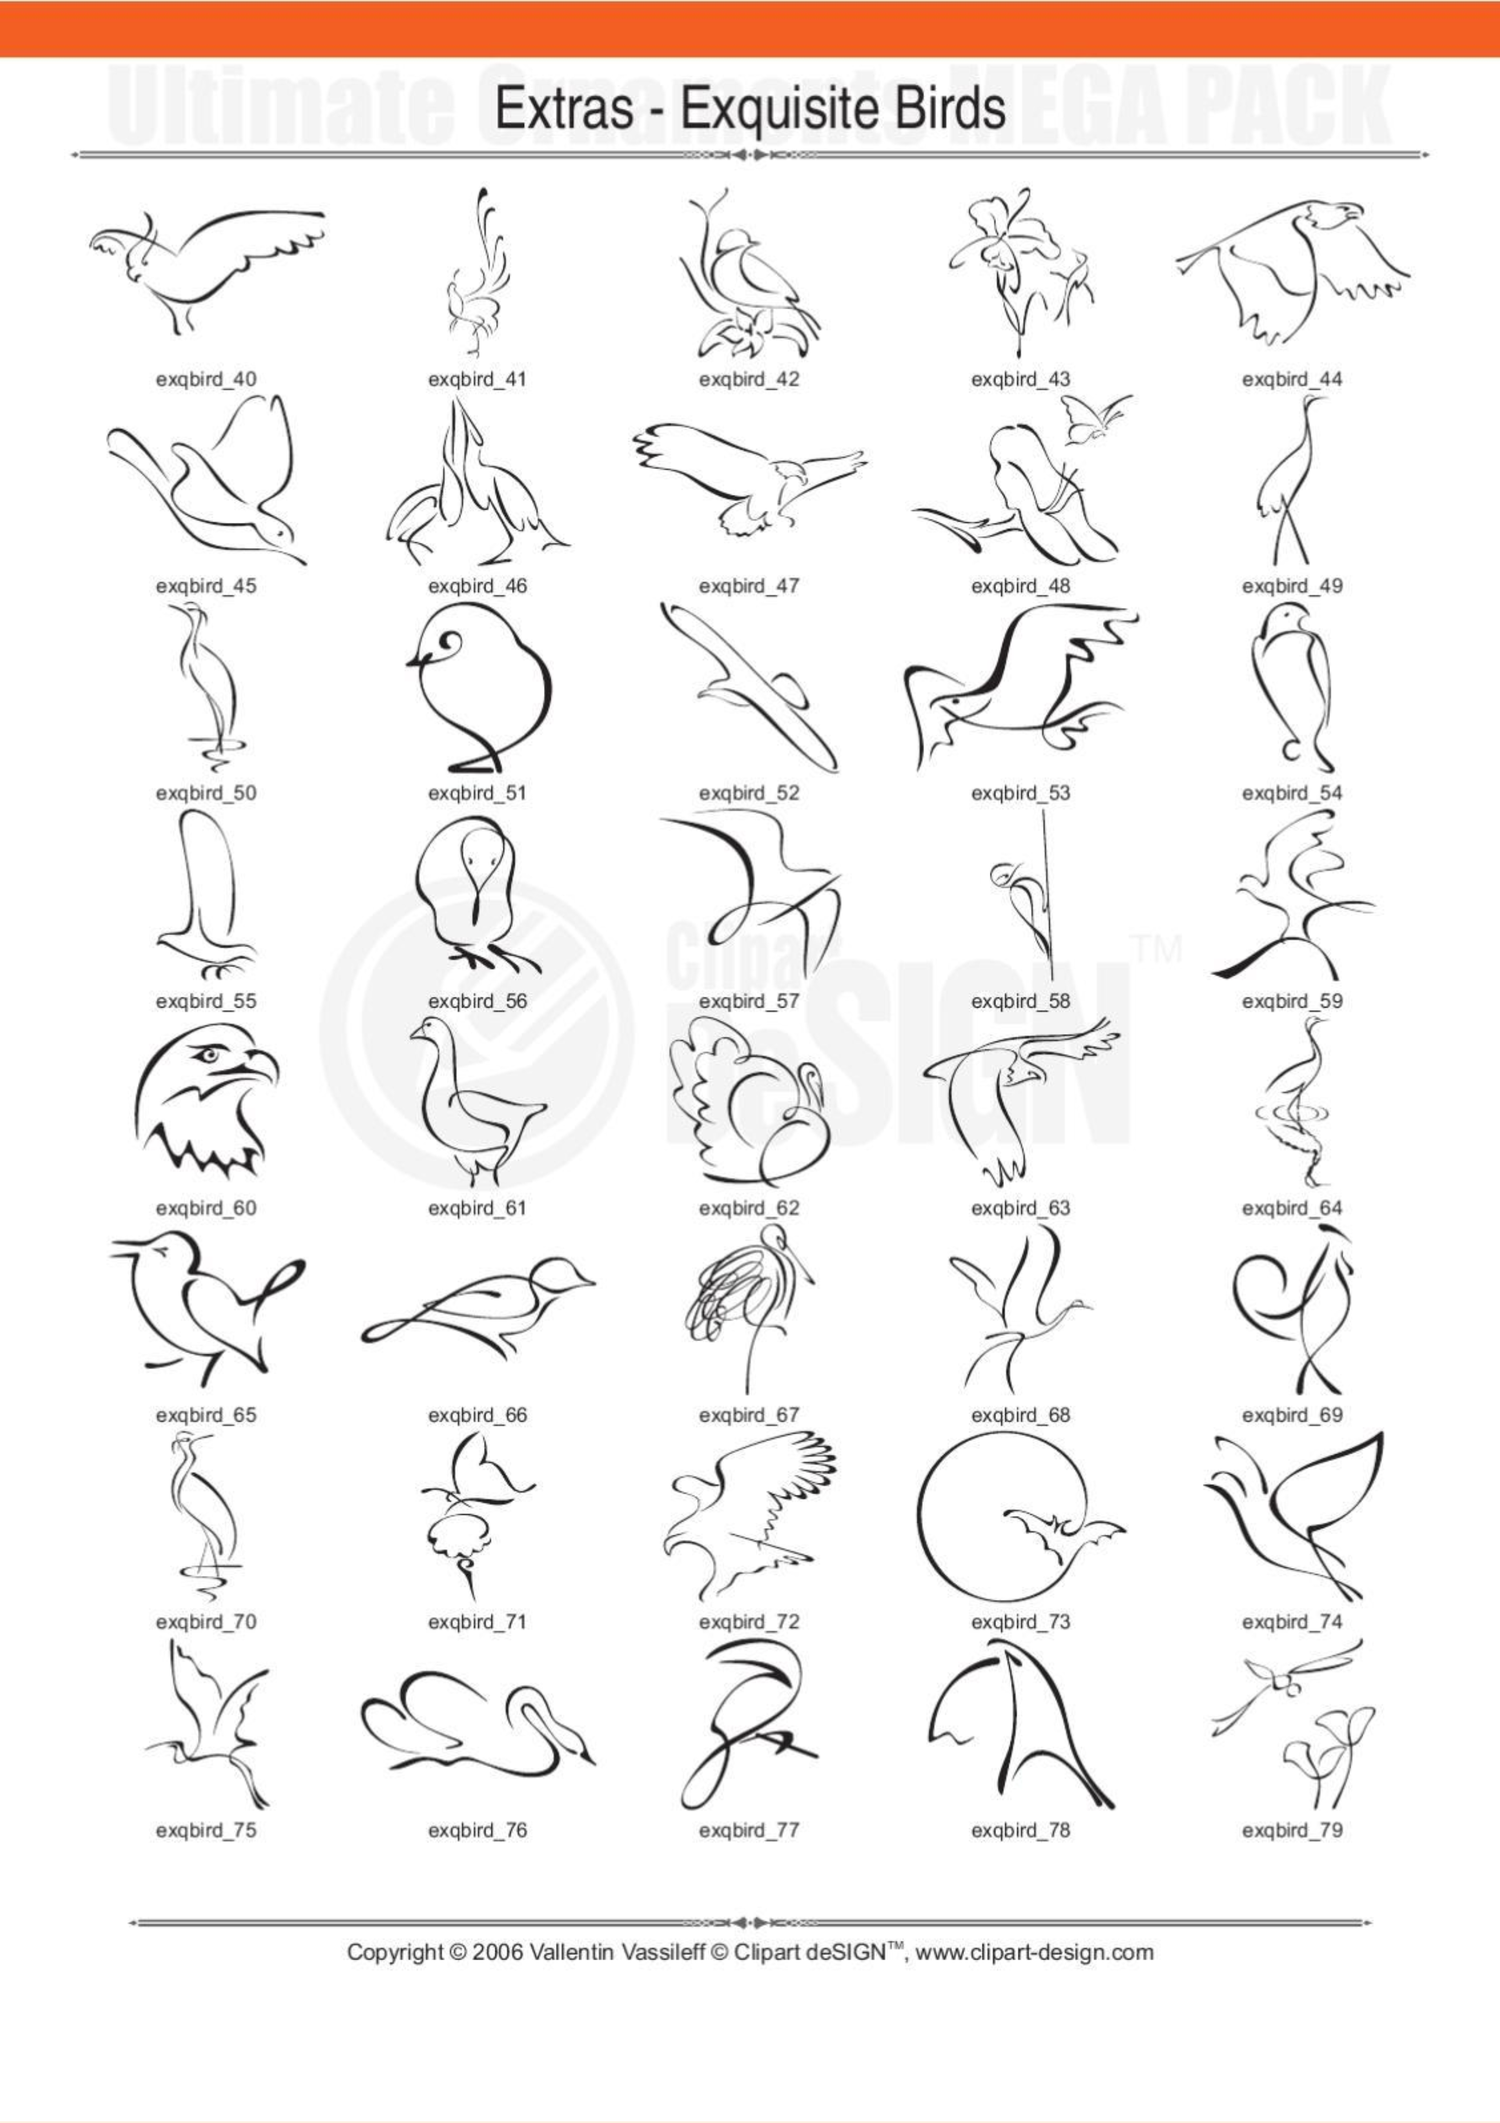 Ultimate Ornaments MEGA PACK
Extras - Exquisite Birds
exqbird_40 exqbird_41 exqbird_42 exqbird_43 exqbird_44
exqbird_45 exqbird_46 exqbird_47 exqbird_48 exqbird_49
exqbird_50 exqbird_51 exqbird_52 exqbird_53 exqbird_54
exqbird_55 exqbird_56 exqbird_57 exqbird_58 exqbird_59
Clipart
DeSIGN™
exqbird_60 exqbird_61 exqbird_62 exqbird_63 exqbird_64
exqbird_65 exqbird_66 exqbird_67 exqbird_68 exqbird_69
exqbird_70 exqbird_71 exqbird_72 exqbird_73 exqbird_74
exqbird_75 exqbird_76 exqbird_77 exqbird_78 exqbird_79
Copyright © 2006 Vallentin Vassileff © Clipart deSIGN™, www.clipart-design.com